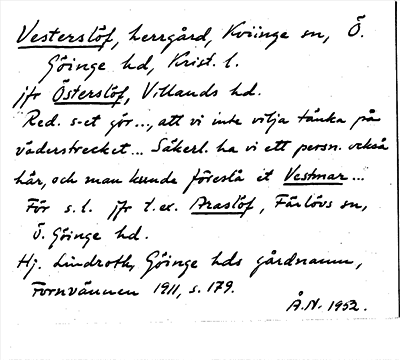 Vesterslöf, herrgård, Kviinge sn, Ö.
Göinge hd, Krist. l.
jfr Österslöf, Villands hd.
Red. s-et gör..., att vi inte vilja tänka på
väderstrecket... Säkerl. ha vi ett persn. också
här, och man kunde föreslå et Vestmar...
För s.l. jfr t.ex. Araslöf, Färlövs sn,
Ö. Göinge hd.
Hj. Lindroth, Göinge hds gårdnamn,
Fornvännen 1911, s. 179.
Å.N. 1952.